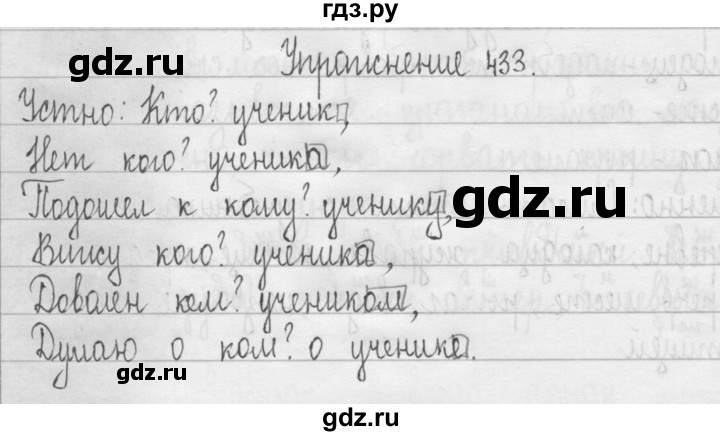 гдз.ру
gdz.ru
Упражнение 433.
Устно: Кто? ученик,
Нет кого? ученика,
Подошел к кому? ученику,
gdz.ru
Вижу кого? ученика,
Доволен кем? учеником,
Думаю о ком? о ученике.
gdz.ru
gdz.ru